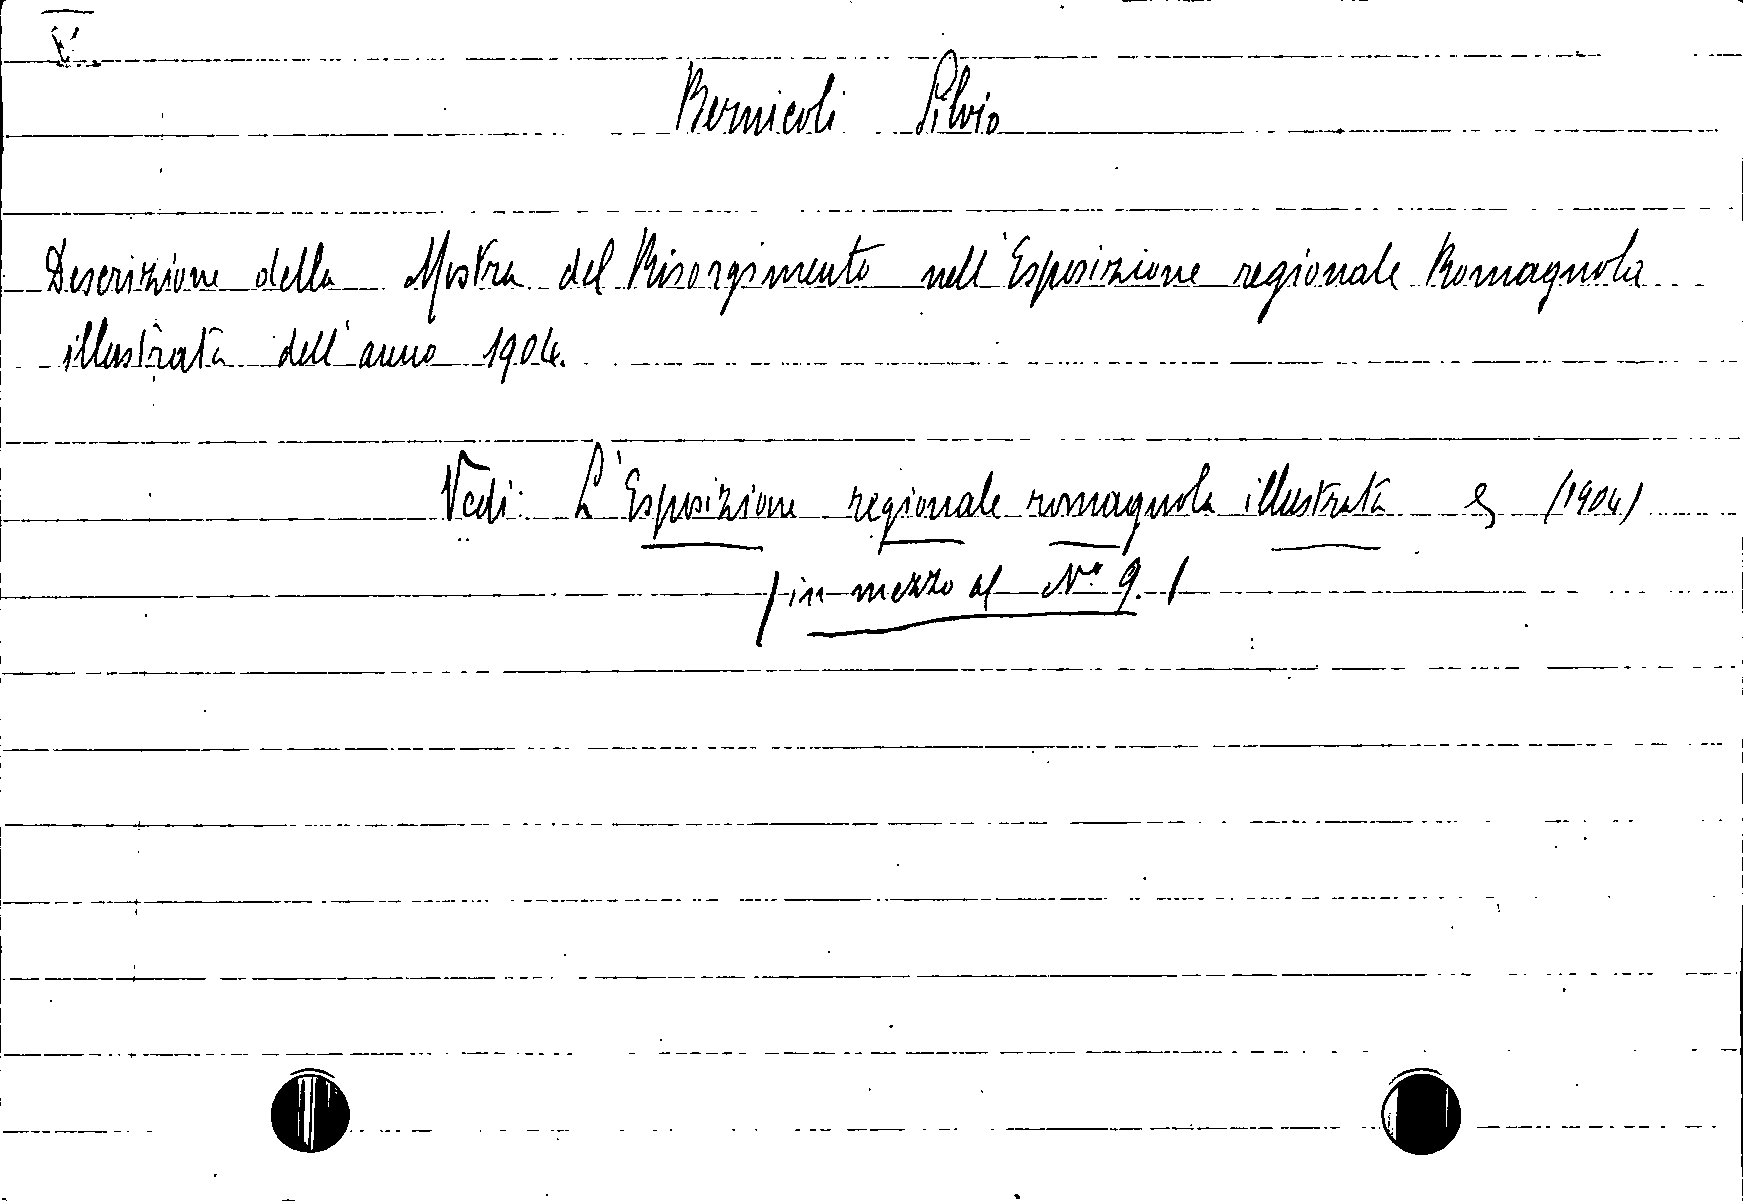 V.
Bernicoli Silvio
Descrizione della Mostra del Risorgimento nell'Esposizione regionale Romagnola
illustrata dell'anno 1904.
Vedi: L'Esposizione regionale romagnola illustrata (1904)
/in mezzo al N.° 9./